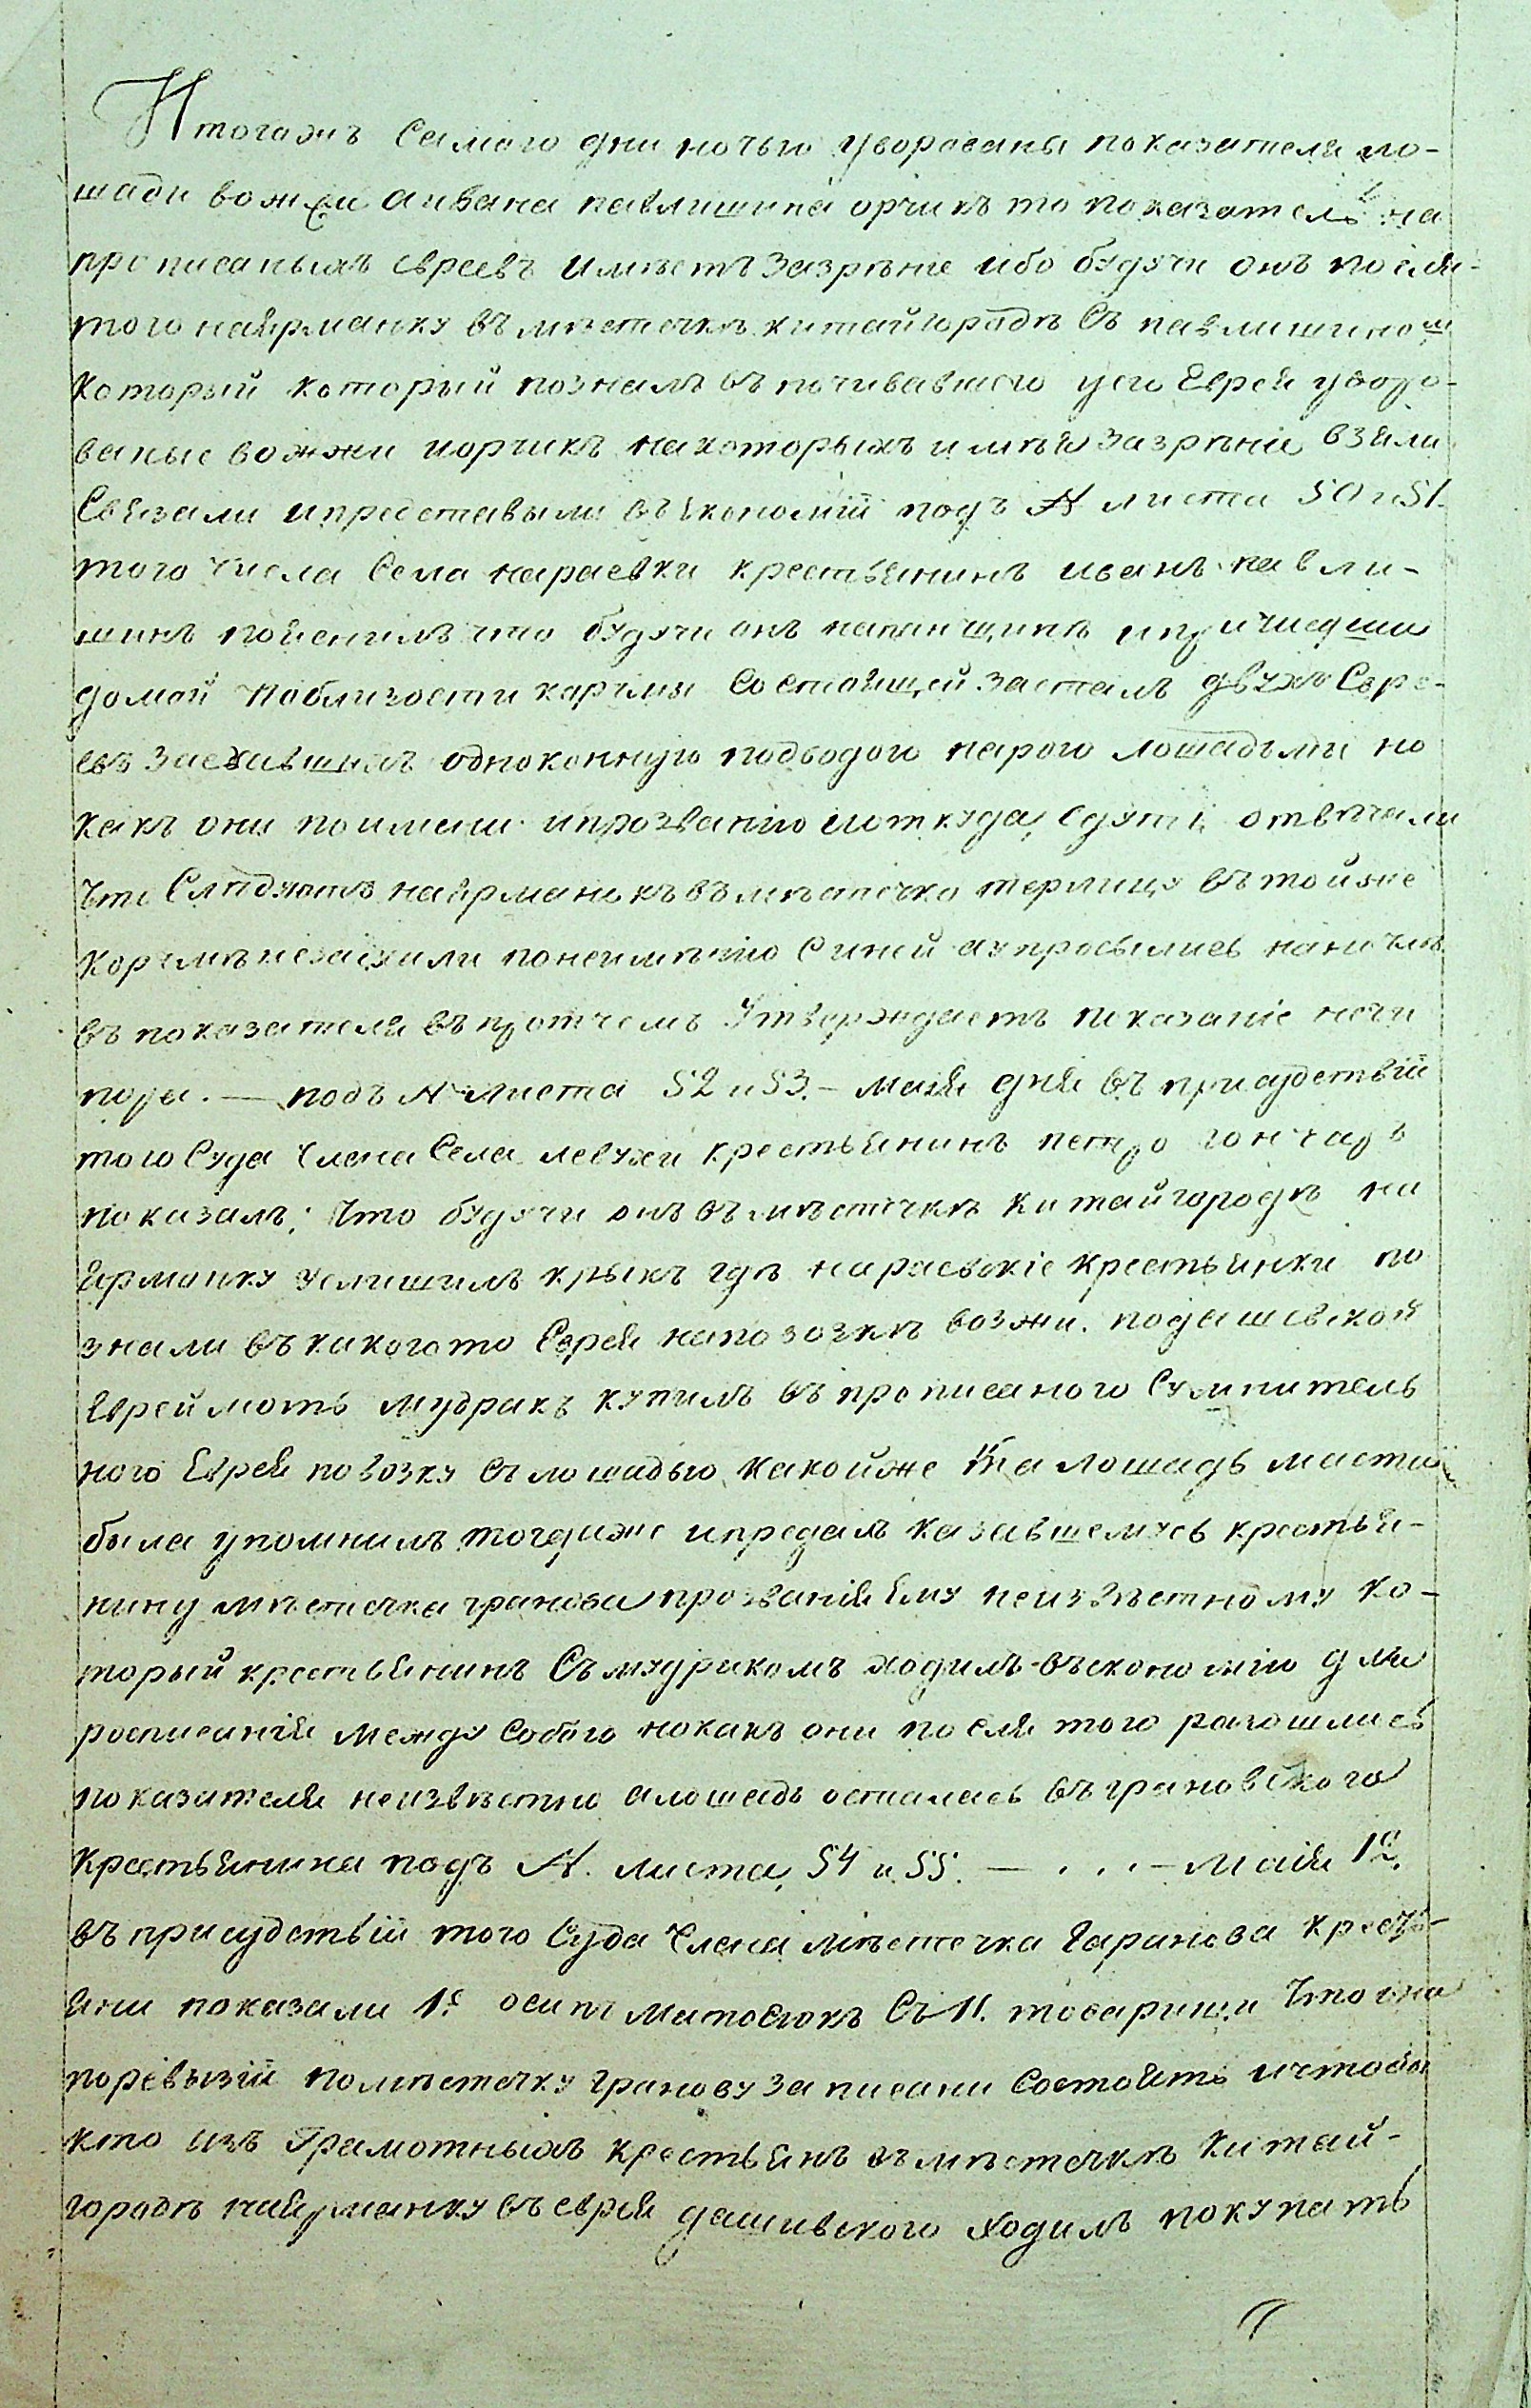 И тогожъ самого дни ночью уворованы показателя ло-
шади вожжи а ивана павлишина орчикъ то показатель на
прописаныхъ евреевъ имѣетъ зазрѣніе ибо будучи онъ посля
того наярманку въ мѣстечкѣ китайгородѣ съ павлишином
который который позналъ въ почивавшого уего Еврея уворо-
ваные вожжи иорчикъ накоторыхъ имѣя зазрѣніе взяли
связали ипредставыли въ економій подъ № листа 50 и 51.
того числа села нараевки крестьянинъ иванъ павли-
шинъ пояснилъ что будучи онъ напанщинѣ
домой поблизости карчмы состоящей засталъ двухъ Евре-
евъ заехавшихъ одноконную подводою парою лошадьми но
какъ они поимени ипрозванію иоткуда едутъ отвѣчали
что Слѣдуютъ наярманикъ въ мѣстечко терлицу въ тойже
корчмѣ незаехили понеимѣнію синей аупросылись наночлѣ
въ показателя въ протчемъ утверждаетъ показаніе нечи
пора. — подъ № листа 52 и 53. — маія дня въ присудствій
того Суда члена Села левухи крестьянинъ петро гончаръ
показалъ; что будучи онъ въ мѣстечкѣ китайгородѣ на
ярманку услишилъ крыкъ гдѣ нараевскіе крестьянки по
знали въ какогото Еврея наповозкѣ возжи. подашевской
Еврей мотъ мудракъ купилъ въ прописаного Сумнитель
ного Еврея повозку съ лошадью какойже та лошадь масти
была упомнилъ тогдаже ипредалъ казавшемусь крестья-
нину мѣстечка гранова прозванія Ему неизвѣстному ко-
торый крестьянинъ Съ мудракомъ ходилъ въекономію для
росписанія между собою нокакъ они посля того разошлись
показателя неизвѣстно алошадь осталась въ грановского
крестьянина подъ № листа 54 и 55. — . . . — маія 12.
въ присудствій того Суда члена мѣстечка Гаранова кресть-
яни показали 1е осипъ матосюкъ Съ 11. товарищи что они
поревызій помѣстечку гранову записани состоятъ ичтобы
кто изъ Грамотныхъ крестьянъ въ мѣстечкѣ китай-
городѣ наярманку въ еврея дашивского ходилъ покупать